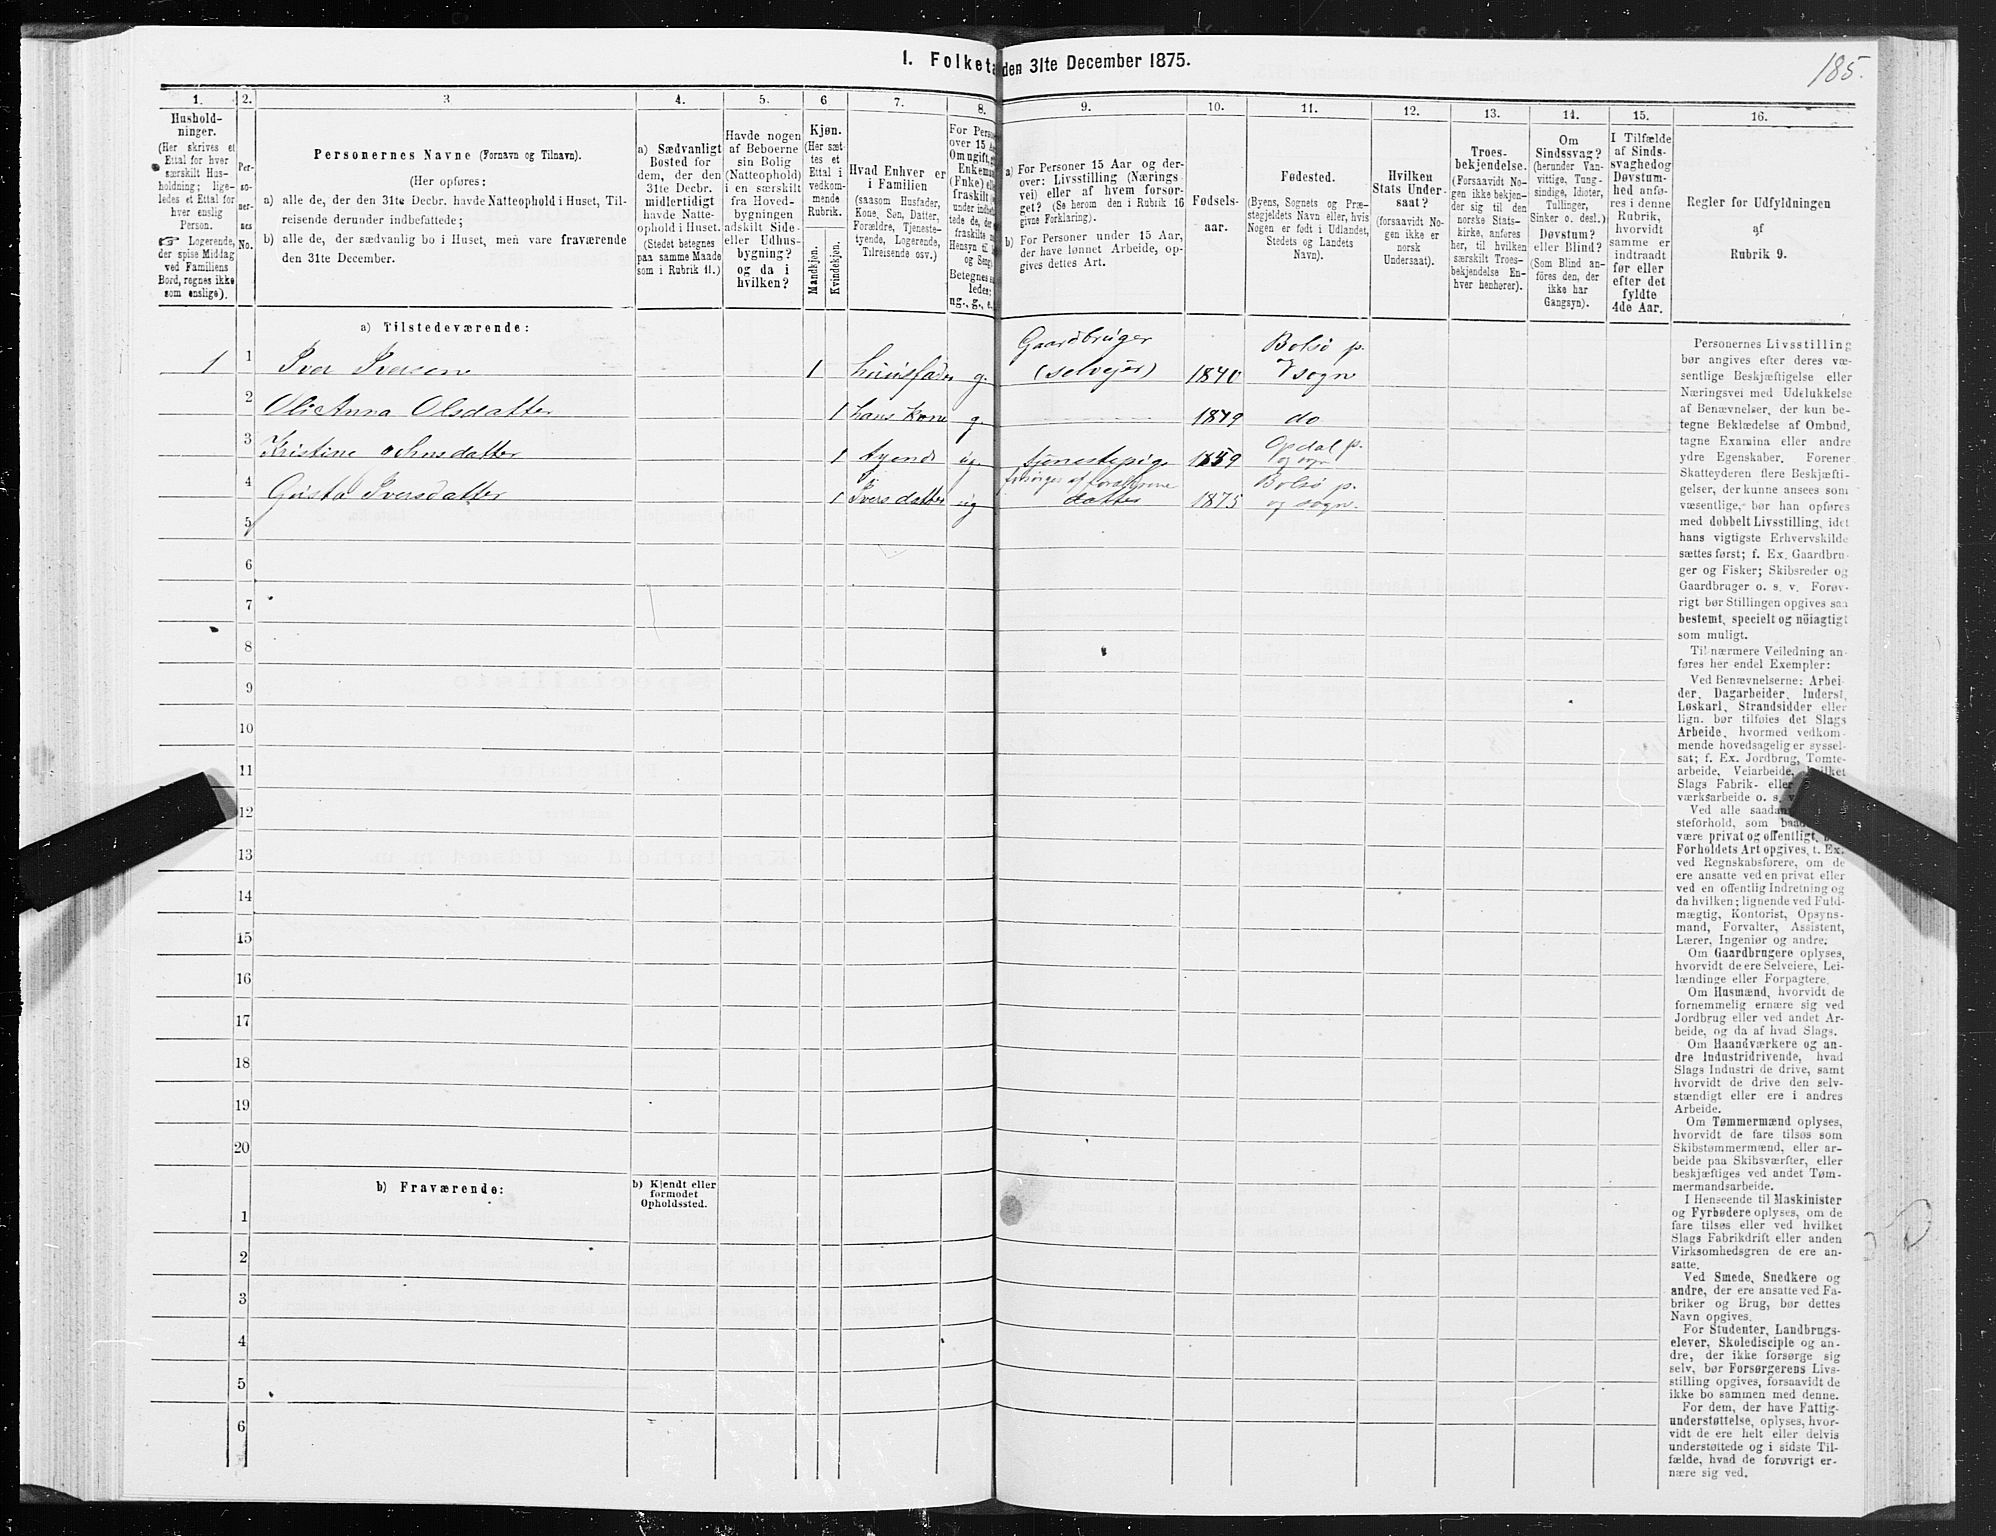 185.
I. Folketa den 31te December 1875.
1. 2. 3 4. 5. 6 7. 8. 9. 10. 11. 12. 13. 14. 15. 16.
Hushold-
ninger.
(Her skrives et
Ettal for hver
særskilt Hus-
holdning; lige-
ledes et Ettal for
hver enslig
Person.
☞ Logerende,
der spise Middag
ved Familiens
Bord, regnes ikke
som enslige).
Per-
so-
ner-
nes
No.
Personernes Navne (Fornavn og Tilnavn).
(Her opføres:
a) alle de, der den 31te Decbr. havde Natteophold i Huset, Til-
reisende derunder indbefattede;
b) alle de, der sædvanlig bo i Huset, men vare fraværende
den 31te December.
a) Sædvanligt
Bosted for
dem, der den
31te Decbr.
midlertidigt
havde Natte-
ophold i Huset.
(Stedet betegnes
paa samme Maade
som i Rubrik 11.)
Havde nogen
af Beboerne
sin Bolig
(Natteophold)
i en særskilt
fra Hoved-
bygningen
adskilt Side-
eller Udhus-
bygning?
og da i
hvilken?
Kjøn.
(Her sæt-
tes et
Ettal i
vedkom-
mende
Rubrik.
Mandkjøn.
Kvindekjøn.
Hvad Enhver er
i Familien
(saasom Husfader,
Kone, Søn, Datter,
Forældre, Tjeneste-
tyende, Logerende,
Tilreisende osv.)
For Perso
over 15 Aa
Om ugift, g
Enkema
(Enke) el
fraskilt
under indbe
tede de, de
fraskilte
Hensyn til
og Seng)
Betegnes s
ledes:
ug., g., e.
a) For Personer 15 Aar og der-
over: Livsstilling (Nærings-
vei) eller af hvem forsør-
get? (Se herom den i Rubrik 16
givne Forklaring).
b) For Personer under 15 Aar,
der have lønnet Arbeide, op-
gives dettes Art.
Fødsels-
aar.
Fødested.
(Byens, Sognets og Præ-
stegjeldets Navn eller, hvis
Nogen er født i Udlandet,
Stedets og Landets
Navn).
Hvilken
Stats Under-
saat?
(forsaavidt No-
gen ikke er
norsk
Undersaat).
Troes-
bekjendelse.
(Forsaavidt No-
gen ikke bekjen-
der sig til den
norske Stats-
kirke, anføres
her, til hvilken
særskilt Troes-
bekjendelse En-
hver henhører).
Om
Sindssvag?
(herunder Van-
vittige, Tung-
sindige, Idioter,
Tullinger,
Sinker o. desl.)
Døvstum?
eller Blind?
(Som Blind an-
føres den, der
ikke har
Gangsyn).
I Tilfælde
af Sinds-
svaghed og
Døvstum-
hed anfø-
res i denne
Rubrik,
hvorvidt
samme er
indtraadt
før eller
efter det
fyldte
4de Aar.
Regler for Udfyldningen
af
Rubrik 9.
a) Tilstedeværende:
1 1 Iver Iversen 1 huusfader g. Gaardbruger (selvejer) 1840 Bolsø p. sogn
2 Oli Anna Olsdatter 1 hans kone g. 1849 do
3 Kristine Johnsdatter 1 tyende ug tjenestepige 1859 Opdal p. og sogn
4 Gusta Iversdatter 1 Ivers datter ug forsørges af forældrene datter 1875 Bolsø p. og sogn.
5
6
7
8
9
10
11
12
13
14
15
16
17
18
19
20
b) Fraværende:
b) Kjendt eller
formodet
Opholdssted.
1
2
3
4
5
6
Personernes Livsstilling
bør angives efter deres væ-
sentlige Beskjæftigelse eller
Næringsvei med Udelukkelse
af Benævnelser, der kun be-
tegne Beklædelse af Ombud,
tagne Examina eller andre
ydre Egenskaber. Forener
Skatteyderen flere Beskjæfti-
gelser, der kunne ansees som
væsentlige, bør han opføres
med dobbelt Livsstilling, idet
hans vigtigste Erhvervskilde
sættes først; f. Ex. Gaardbru-
ger og Fisker; Skibsreder og
Gaardbruger o. s. v. Forøv-
rigt bør Stillingen opgives saa
bestemt, specielt og nöiagtigt
som muligt.
Til nærmere Veiledning an-
føres her endel Exempler:
Ved Benævnelserne: Arbei-
der, Dagarbeider, Inderst,
Løskarl, Strandsidder eller
lign. bør tilføies det Slags
Arbeide, hvormed vedkom-
mende hovedsagelig er syssel-
sat; f. Ex. Jordbrug, Tomte-
arbeide, Veiarbeide, hvilket
Slags Fabrik- eller
værksarbeide o. s.
Ved alle saadan
steforhold, som baa
være privat og offentligt,
Forholdets Art opgives, t. Ex.
ved Regnskabsførere, om de
ere ansatte ved en privat eller
ved en offentlig Indretning og
da hvilken; lignende ved Fuld-
mægtig, Kontorist, Opsyns-
mand, Forvalter, Assistent,
Lærer, Ingeniør og andre.
Om Gaardbrugere oplyses,
hvorvidt de ere Selveiere, Lei-
lændinge eller Forpagtere.
Om Husmænd, hvorvidt de
fornemmelig ernære sig ved
Jordbrug eller ved andet Ar-
beide, og da af hvad Slags.
Om Haandværkere og an-
dre Industridrivende, hvad
Slags Industri de drive, samt
hvorvidt de drive den selv-
stændigt eller ere i andres
Arbeide.
Om Tømmermænd oplyses,
hvorvidt de fare tilsøs som
Skibstømmermænd, eller ar-
beide paa Skibsværfter, eller
beskjæftiges ved andet Tøm-
mermandsarbeide.
I Henseende til Maskinister
og Fyrbødere oplyses, om de
fare tilsøs eller ved hvilket
Slags Fabrikdrift eller anden
Virksomhedsgren de ere an-
satte.
Ved Smede, Snedkere og
andre, der ere ansatte ved Fa-
briker og Brug, bør dettes
Navn opgives.
For Studenter, Landbrugs-
elever, Skoledisciple og an-
dre, der ikke forsørge sig
selv, bør Forsørgerens Livs-
stilling opgives, forsaavidt de
ikke bo sammen med denne.
For dem, der have Fattig-
understøttelse, oplyses, hvor-
vidt de ere helt eller delvis
understøttede og i sidste Til-
fælde, hvad de forøvrigt er-
nære sig ved.